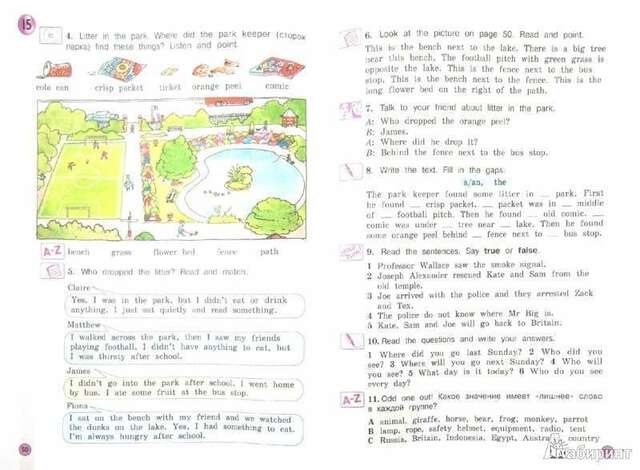 15
4. Litter in the park. Where did the park keeper (сторож
парка) find these things? Listen and point.
cola can crisp packet ticket orange peel comic
A-Z bench grass flower bed fence path
5. Who dropped the litter? Read and match.
Claire
Yes, I was in the park, but I didn't eat or drink
anything. I just sat quietly and read something.
Matthew
I walked across the park, then I saw my friends
playing football. I didn't have anything to eat, but
I was thirsty after school.
James
I didn't go into the park after school. I went home
by bus. I ate some fruit at the bus stop.
Fiona
I sat on the bench with my friend and we watched
the ducks on the lake. Yes, I had something to eat.
I'm always hungry after school.
50
6. Look at the picture on page 50. Read and point.
This is the bench next to the lake. There is a big tree
near this bench. The football pitch with green grass is
opposite the lake. This is the fence next to the bus
stop. This is the bench next to the fence. This is the
long flower bed on the right of the path.
7. Talk to your friend about litter in the park.
A: Who dropped the orange peel?
B: James.
A: Where did he drop it?
B: Behind the fence next to the bus stop.
8. Write the text. Fill in the gaps:
a/an, the
The park keeper found some litter in __ park. First
he found __ crisp packet. __ packet was in __ middle
of __ football pitch. Then he found __ old comic. __
comic was under __ tree near __ lake. Then he found
some orange peel behind __ fence next to __ bus stop.
9. Read the sentences. Say true or false.
1 Professor Wallace saw the smoke signal.
2 Joseph Alexander rescued Kate and Sam from the
old temple.
3 Joe arrived with the police and they arrested Zack
and Tex.
4 The police do not know where Mr Big is.
5 Kate, Sam and Joe will go back to Britain.
10. Read the questions and write your answers.
1 Where did you go last Sunday? 2 Who did you
see? 3 Where will you go next Sunday? 4 Who will
you see? 5 What day is it today? 6 Who do you see
every day?
A-Z 11. Odd one out! Какое значение имеет «лишнее» слово
в каждой группе?
A animal, giraffe, horse, bear, frog, monkey, parrot
B lamp, rope, safety helmet, equipment, radio, tent
C Russia, Britain, Indonesia, Egypt, Australia, country
Лабиринт